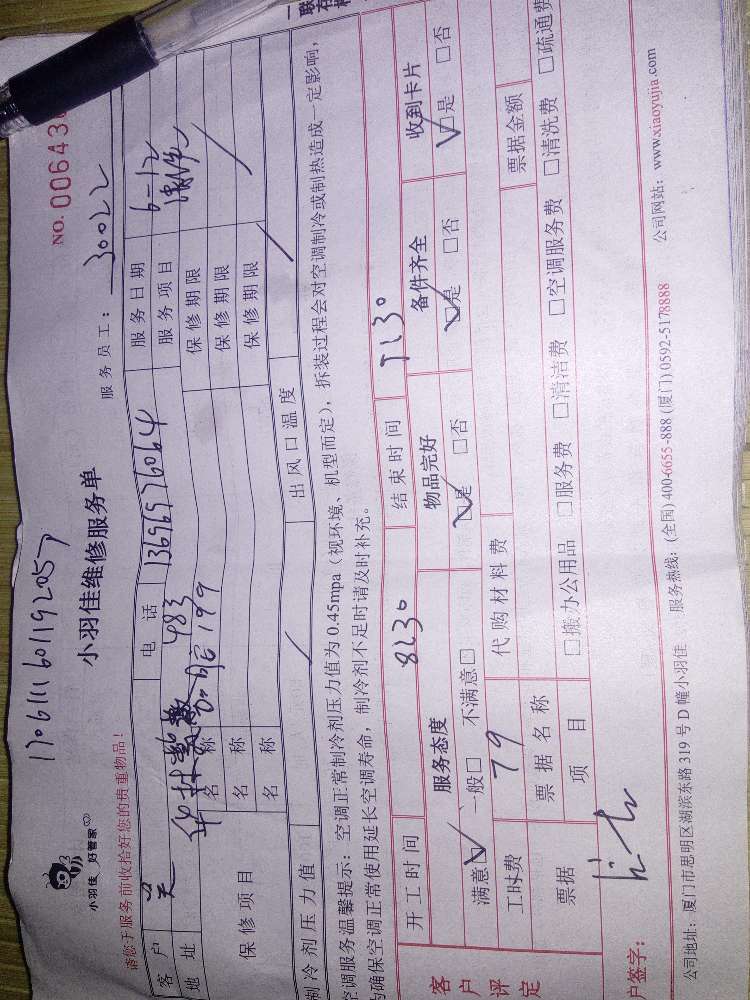 1706111601192057
小羽佳 好管家
小羽佳维修服务单
NO. 00643
请您于服务前收拾好您的贵重物品！
服务员工： 30022
客户 吴 电话 13696976064 服务日期 6-12
地址 483 服务项目
199
保修项目 名称 保修期限
名称 保修期限
名称 保修期限
制冷剂压力值 出风口温度
空调服务温馨提示：空调正常制冷剂压力值为0.45mpa（视环境、机型而定），拆装过程会对空调制冷或制热造成一定影响，
为确保空调正常使用延长空调寿命，制冷剂不足时请及时补充。
客户评定
开工时间 8:30 结束时间 11:30
服务态度 物品完好 备件齐全 收到卡片
满意☑ 一般□ 不满意□ ☑是 □否 ☑是 □否 ☑是 □否
工时费 79 代购材料费 票据金额
票据 票据名称
项目 □搬办公用品 □服务费 □清洁费 □空调服务费 □清洗费 □疏通费
户签字：
公司地址：厦门市思明区湖滨东路319号D幢小羽佳 服务热线：(全国) 400-6655-888 (厦门) 0592-5178888 公司网站：www.xiaoyujia.com